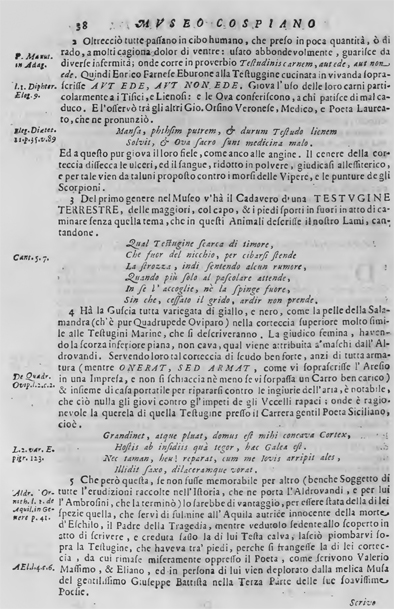 38 MVSEO COSPIANO
2 Oltrecciò tutte passano in cibo humano, che preso in poca quantità, ò di
rado, a molti cagiona dolor di ventre: usato abbondevolmente, guarisce da
P. Manut. in Adag.
diverse infermità; onde corre in proverbio Testudinis carnem, aut ede, aut non
ede. Quindi Enrico Farnese Eburone alla Testuggine cucinata in vivanda sopra-
l.1. Dipbter. Eleg. 9.
scrisse AVT EDE, AVT NON EDE. Giova l'uso delle loro carni parti-
colarmente a i Tisici, e Lienosi: e le Ova conferiscono, a chi patisce di mal ca-
duco. E l'osservò tra gli altri Gio. Orsino Veronese, Medico, e Poeta Laurea-
to, che ne pronunziò.
Eleg. Diætet. 21. p. 35. v. 89
Mansa, phthisim putrem, & durum Testudo lienem
Solvit, & Ova sacro sunt medicina malo.
Ed a questo pur giova il loro fiele, come anco alle angine. Il cenere della cor-
teccia dissecca le ulceri, ed il sangue, ridotto in polvere, giudicasi alessiterico,
e per tale vien da taluni proposto contro i morsi delle Vipere, e le punture de gli
Scorpioni.
3 Del primo genere nel Museo v'hà il Cadavero d'una TESTVGINE
TERRESTRE, delle maggiori, col capo, & i piedi sporti in fuori in atto di ca-
minare senza quella tema, che in questi Animali descrisse il nostro Lami, can-
tandone.
Qual Testugine scarca di timore,
Cant. 5. 7.
Che fuor del nicchio, per cibarsi stende
La strozza, indi sentendo alcun rumore,
Quando più solo al pascolare attende,
In se l' accoglie, nè la spinge fuore,
Sin che, cessato il grido, ardir non prende.
4 Hà la Guscia tutta variegata di giallo, e nero, come la pelle della Sala-
mandra (ch'è pur Quadrupede Oviparo) nella corteccia superiore molto simi-
le alle Testugini Marine, che si descriveranno. La giudico femina, haven-
do la scorza inferiore piana, non cava, qual viene attribuita a' maschi dall'Al-
drovandi. Servendo loro tal corteccia di scudo ben forte, anzi di tutta arma-
De Quadr. Ovip. l. 2. c. 2.
tura (mentre ONERAT, SED ARMAT, come vi soprascrisse l'Aresio
in una Impresa, e non si schiaccia nè meno se vi sorpassa un Carro ben carico)
& insieme di casa portatile per ripararsi contro le ingiurie dell'aria, è notabile,
che ciò nulla gli giovi contro gl'impeti de gli Vccelli rapaci: onde è ragio-
nevole la querela di quella Testugine presso il Carrera gentil Poeta Siciliano,
cioè.
Grandinet, atque pluat, domus est mihi concava Cortex,
L. 2. var. E. pigr. 123.
Hostis ab insidiis quà tegor, hac Galea est.
Nec tamen, heu! reparat, cum me Iovis arripit ales,
Illidit saxo, dilaceramque vorat.
5 Che però questa, se non fusse memorabile per altro (benche Soggetto di
Aldr. Ornith. l. 2. de Aquil. in Genere p. 41.
tutte l'erudizioni raccolte nell'Istoria, che ne porta l'Aldrovandi, e per lui
l'Ambrosini, che la terminò) lo sarebbe di vantaggio, per essere stata della di le
spezie quella, che servì di fulmine all'Aquila autrice innocente della morte
d'Eschilo, il Padre della Tragedia, mentre vedutolo sedente allo scoperto in
atto di scrivere, e creduta sasso la di lui Testa calva, lasciò piombarvi so-
pra la Testugine, che haveva tra' piedi, perche si frangesse la di lei cortec-
cia, da cui rimase miseramente oppresso il Poeta, come scrivono Valerio
Massimo, & Eliano, ed in persona di lui vien deplorato dalla melica Musa
del gentilissimo Giuseppe Battista nella Terza Parte delle sue soavissime
Poesie.
Scrivo